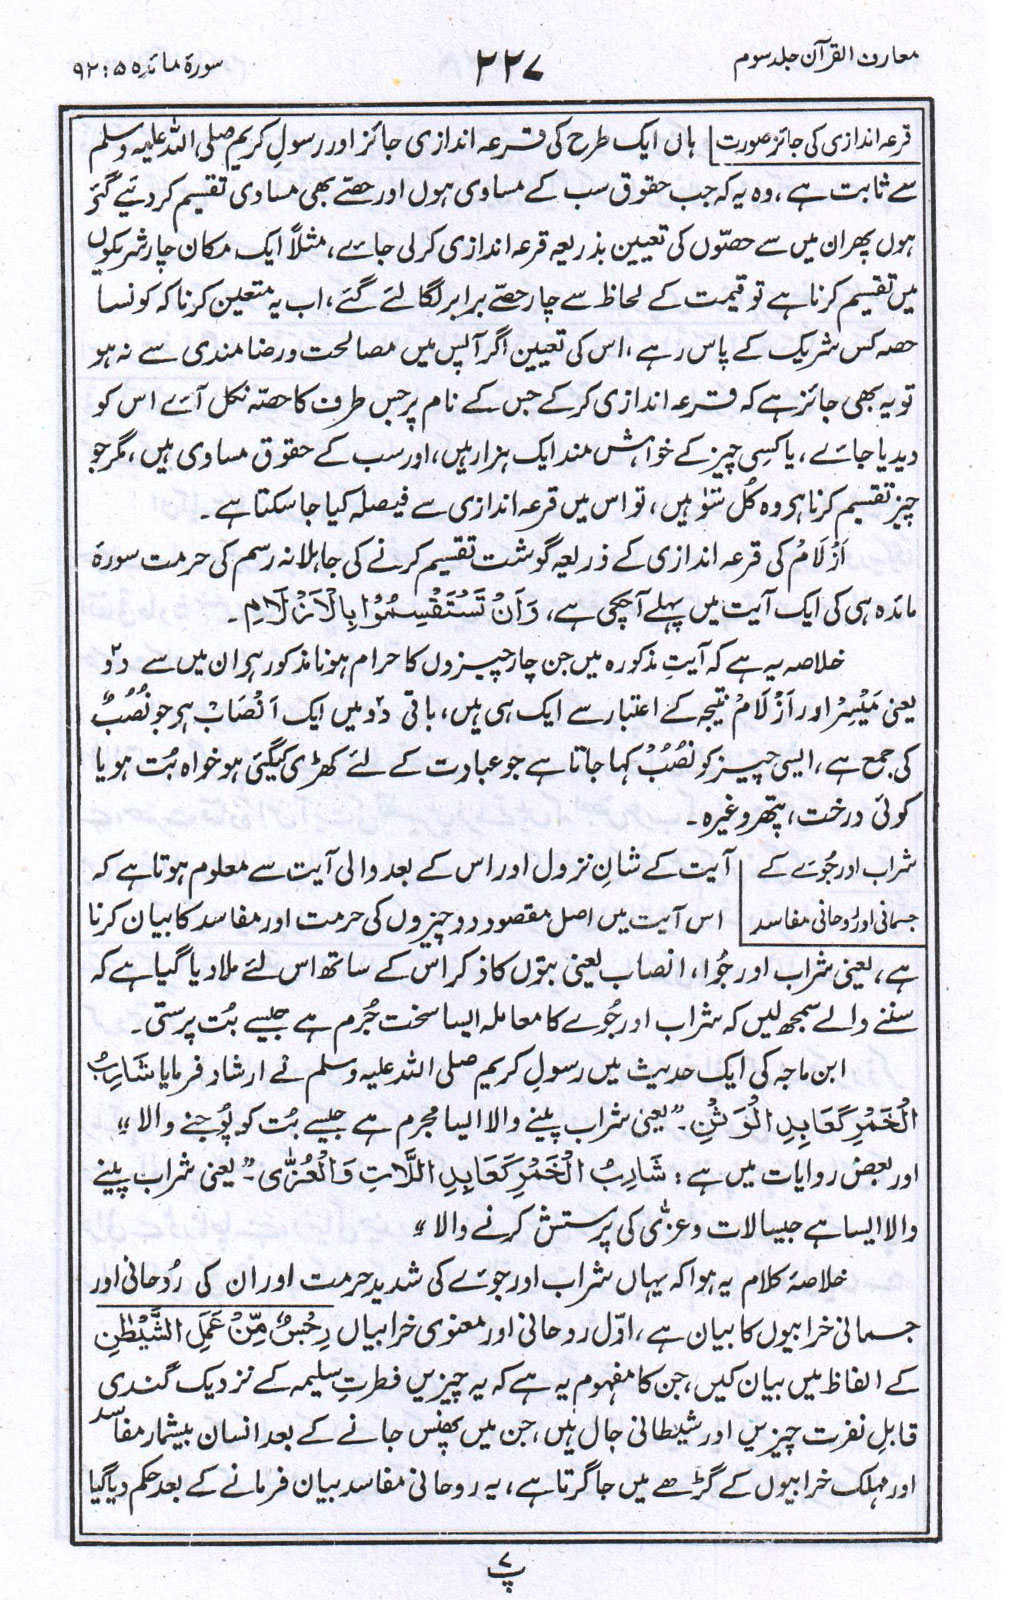 معارف القرآن جلد سوم
۲۲۷
سورۂ مائدہ ۵ : ۹۲
قرعہ اندازی کی جائز صورت ہاں ایک طرح کی قرعہ اندازی جائز اور رسولِ کریم صلی اللہ علیہ وسلم
سے ثابت ہے، وہ یہ کہ جب حقوق سب کے مساوی ہوں اور حصّے بھی مساوی تقسیم کر دئیے گئے
ہوں پھر ان میں سے حصّوں کی تعیین بذریعہ قرعہ اندازی کر لی جائے، مثلاً ایک مکان چار شریکوں
میں تقسیم کرنا ہے تو قیمت کے لحاظ سے چار حصّے برابر لگا لئے گئے، اب یہ متعین کرنا کہ کونسا
حصہ کس شریک کے پاس رہے، اس کی تعیین اگر آپس میں مصالحت و رضامندی سے نہ ہو
تو یہ بھی جائز ہے کہ قرعہ اندازی کر کے جس کے نام پر جس طرف کا حصّہ نکل آئے اس کو
دیدیا جائے، یا کسی چیز کے خواہش مند ایک ہزار ہیں، اور سب کے حقوق مساوی ہیں، مگر جو
چیز تقسیم کرنا ہی وہ کُل سَو ہیں، تو اس میں قرعہ اندازی سے فیصلہ کیا جا سکتا ہے۔
اَزْلَامُ کی قرعہ اندازی کے ذریعہ گوشت تقسیم کرنے کی جاہلانہ رسم کی حرمت سورۂ
مائدہ ہی کی ایک آیت میں پہلے آچکی ہے، وَاَنْ تَسْتَقْسِمُوْا بِالْاَزْلَامِ۔
خلاصہ یہ ہے کہ آیتِ مذکورہ میں جن چار چیزوں کا حرام ہونا مذکور ہی ان میں سے دو
یعنی مَیْسِرْ اور اَزْلَامْ نتیجہ کے اعتبار سے ایک ہی ہیں، باقی دو میں ایک اَنْصَابْ ہی جو نُصُبٌ
کی جمع ہے، ایسی چیز کو نُصُبْ کہا جاتا ہے جو عبادت کے لئے کھڑی کیگئی ہو خواہ بُت ہو یا
کوئی درخت، پتھر وغیرہ۔
شراب اور جُوئے کے آیت کے شانِ نزول اور اس کے بعد والی آیت سے معلوم ہوتا ہے کہ
جسمانی اور رُوحانی مفاسد اس آیت میں اصل مقصود دو چیزوں کی حرمت اور مفاسد کا بیان کرنا
ہے، یعنی شراب اور جُوا، انصاب یعنی بتوں کا ذکر اس کے ساتھ اس لئے ملا دیا گیا ہے کہ
سننے والے سمجھ لیں کہ شراب اور جُوے کا معاملہ ایسا سخت جُرم ہے جیسے بُت پرستی۔
ابن ماجہ کی ایک حدیث میں رسولِ کریم صلی اللہ علیہ وسلم نے ارشاد فرمایا شَارِبُ
الْخَمْرِ كَعَابِدِ الْوَثَنِ۔ ”یعنی شراب پینے والا ایسا مجرم ہے جیسے بُت کو پُوجنے والا“
اور بعض روایات میں ہے: شَارِبُ الْخَمْرِ كَعَابِدِ اللَّاتِ وَالْعُزّٰى۔ ”یعنی شراب پینے
والا ایسا ہے جیسا لات و عزّٰی کی پرستش کرنے والا“
خلاصۂ کلام یہ ہوا کہ یہاں شراب اور جوئے کی شدید حرمت اور ان کی رُوحانی اور
جسمانی خرابیوں کا بیان ہے، اوّل روحانی اور معنوی خرابیاں رِجْسٌ مِّنْ عَمَلِ الشَّيْطٰنِ
کے الفاظ میں بیان کیں، جن کا مفہوم یہ ہے کہ یہ چیزیں فطرتِ سلیمہ کے نزدیک گندی
قابلِ نفرت چیزیں اور شیطانی جال ہیں، جن میں پھنس جانے کے بعد انسان بیشمار مفاسد
اور مہلک خرابیوں کے گڑھے میں جا گرتا ہے، یہ روحانی مفاسد بیان فرمانے کے بعد حکم دیا گیا
پ۷